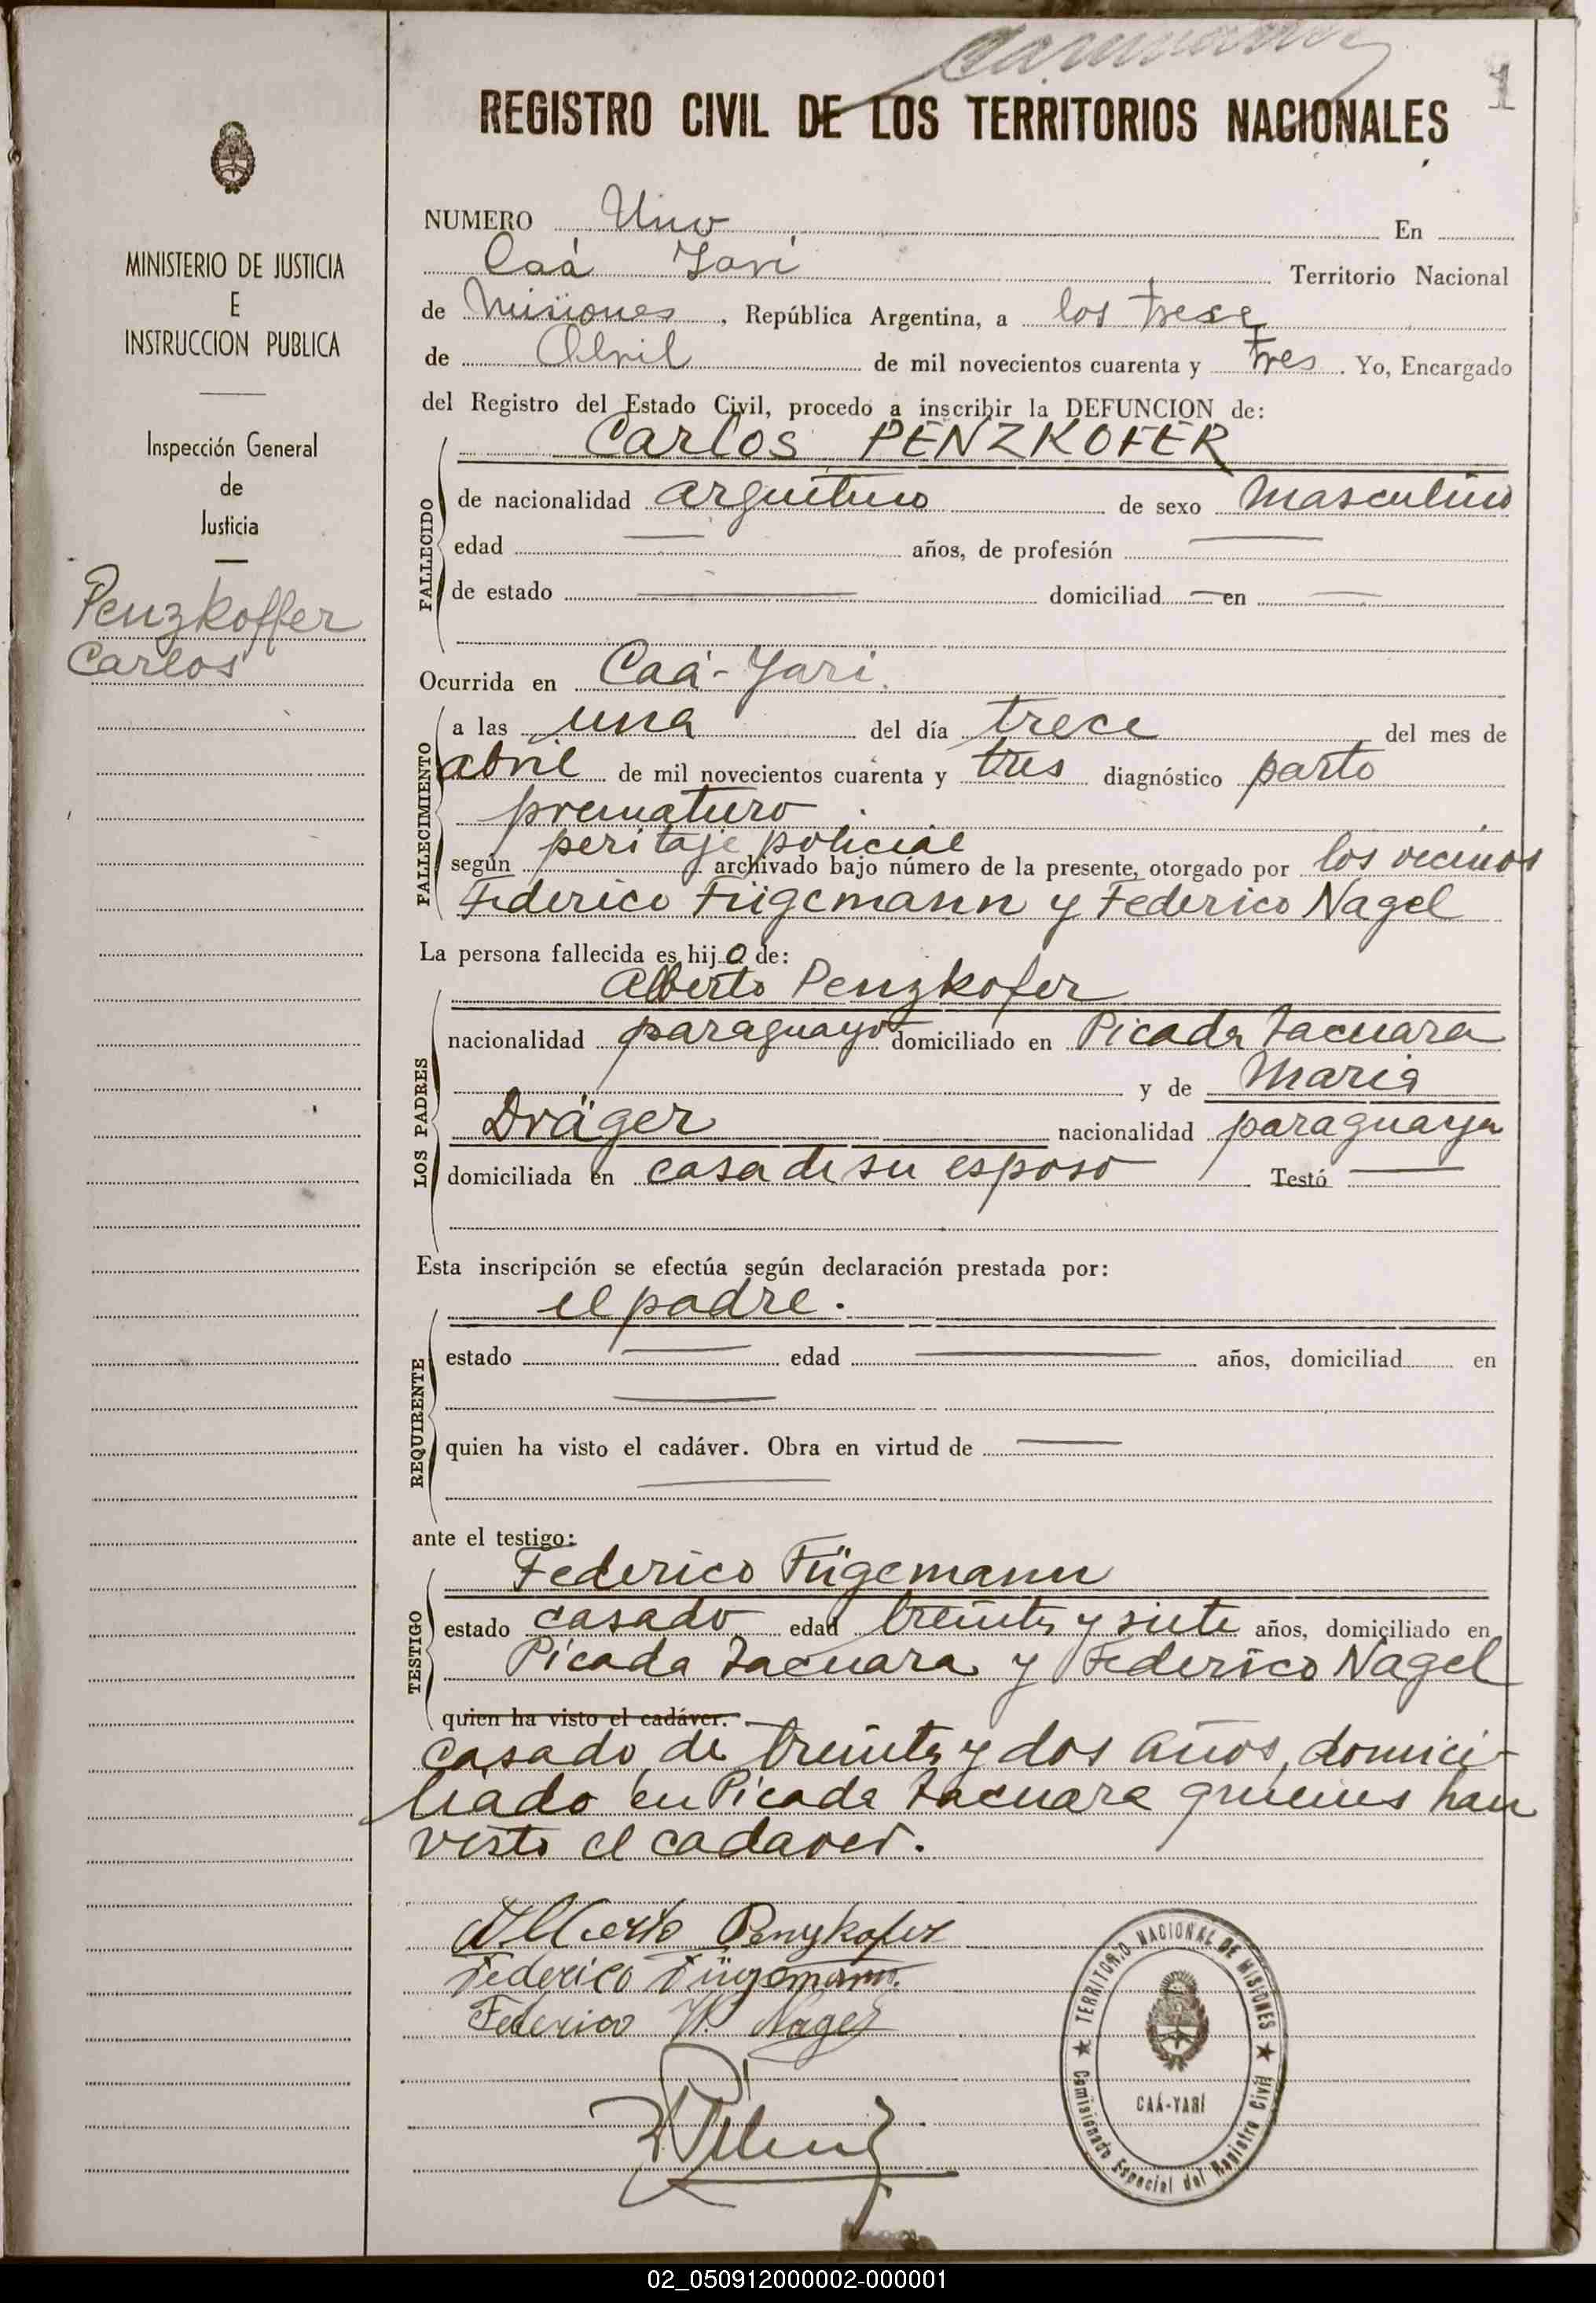 1
REGISTRO CIVIL DE LOS TERRITORIOS NACIONALES
MINISTERIO DE JUSTICIA
E
INSTRUCCION PUBLICA
Inspección General
de
Justicia
Penzkoffer
Carlos
NUMERO Uno En
Caá Yarí Territorio Nacional
de Misiones, República Argentina, a los trese
de Abril de mil novecientos cuarenta y tres. Yo, Encargado
del Registro del Estado Civil, procedo a inscribir la DEFUNCION de:
Carlos PENZKOFER
FALLECIDO
de nacionalidad argentino de sexo masculino
edad — años, de profesión —
de estado — domiciliad — en —
Ocurrida en Caá-Yarí.
FALLECIMIENTO
a las una del día trece del mes de
abril de mil novecientos cuarenta y tres diagnóstico parto
prematuro
según peritaje policial archivado bajo número de la presente, otorgado por los vecinos
Federico Fügemann y Federico Nagel
La persona fallecida es hijo de:
LOS PADRES
Alberto Penzkofer
nacionalidad paraguayo domiciliado en Picada Tacuara
y de Maria
Dräger nacionalidad paraguaya
domiciliada en casa de su esposo Testó —
Esta inscripción se efectúa según declaración prestada por:
REQUIRENTE
el padre.
estado — edad — años, domiciliad en
—
quien ha visto el cadáver. Obra en virtud de —
—
ante el testigo:
TESTIGO
Federico Fügemann
estado casado edad treinta y siete años, domiciliado en
Picada Tacuara y Federico Nagel
quien ha visto el cadáver.
casado, de treinta y dos años, domici-
liado en Picada Tacuara quienes han
visto el cadaver.
Alberto Penzkofer
Federico Fügemann.
Federico W. Nagel
TERRITORIO NACIONAL DE MISIONES
CAÁ-YARÍ
Comisionado Especial del Registro Civil
02_050912000002-000001